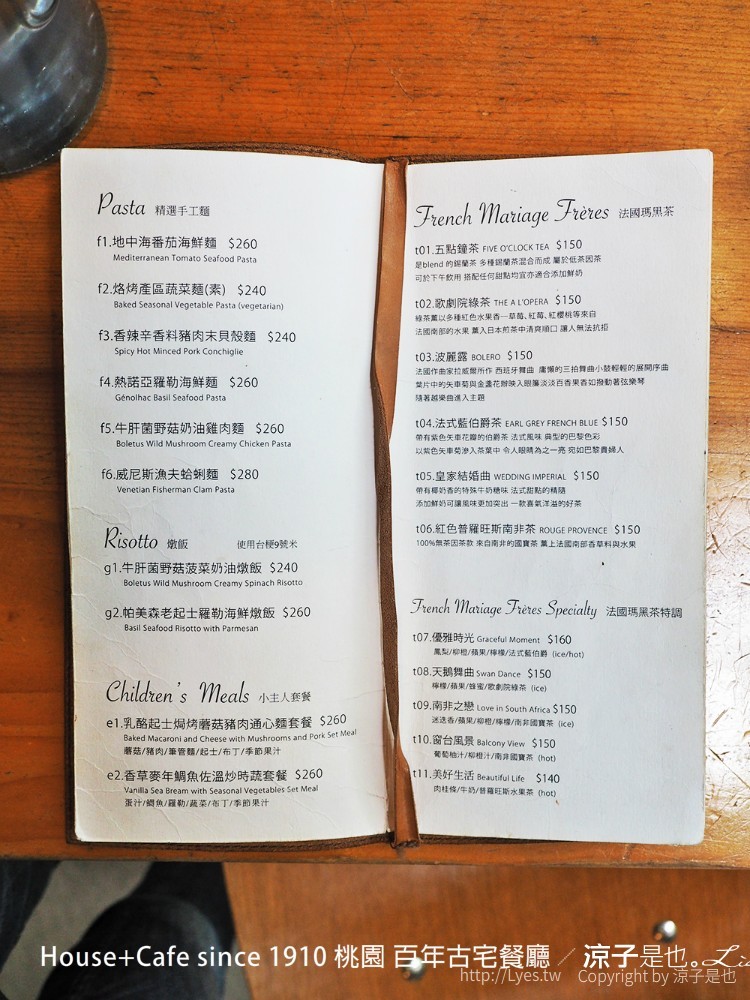 Pasta 精選手工麵
f1.地中海番茄海鮮麵 $260
Mediterranean Tomato Seafood Pasta
f2.烙烤產區蔬菜麵(素) $240
Baked Seasonal Vegetable Pasta (vegetarian)
f3.香辣辛香料豬肉末貝殼麵 $240
Spicy Hot Minced Pork Conchiglie
f4.熱諾亞羅勒海鮮麵 $260
Génolhac Basil Seafood Pasta
f5.牛肝菌野菇奶油雞肉麵 $260
Boletus Wild Mushroom Creamy Chicken Pasta
f6.威尼斯漁夫蛤蜊麵 $280
Venetian Fisherman Clam Pasta
Risotto 燉飯 使用台梗9號米
g1.牛肝菌野菇菠菜奶油燉飯 $240
Boletus Wild Mushroom Creamy Spinach Risotto
g2.帕美森老起士羅勒海鮮燉飯 $260
Basil Seafood Risotto with Parmesan
Children's Meals 小主人套餐
e1.乳酪起士焗烤蘑菇豬肉通心麵套餐 $260
Baked Macaroni and Cheese with Mushrooms and Pork Set Meal
蘑菇/豬肉/筆管麵/起士/布丁/季節果汁
e2.香草麥年鯛魚佐溫炒時蔬套餐 $260
Vanilla Sea Bream with Seasonal Vegetables Set Meal
蛋汁/鯛魚/羅勒/蔬菜/布丁/季節果汁
French Mariage Frères 法國瑪黑茶
t01.五點鐘茶 FIVE O'CLOCK TEA $150
是blend 的錫蘭茶 多種錫蘭茶混合而成 屬於低茶因茶
可於下午飲用 搭配任何甜點均宜亦適合添加鮮奶
t02.歌劇院綠茶 THE A L'OPERA $150
綠茶薰以多種紅色水果香—草莓、紅莓、紅櫻桃等來自
法國南部的水果 薰入日本煎茶中清爽順口 讓人無法抗拒
t03.波麗露 BOLERO $150
法國作曲家拉威爾所作 西班牙舞曲 慵懶的三拍舞曲小鼓輕輕的展開序曲
葉片中的矢車菊與金盞花瓣映入眼簾淡淡百香果香如撥動著弦樂琴
隨著越樂曲進入主題
t04.法式藍伯爵茶 EARL GREY FRENCH BLUE $150
帶有紫色矢車花瓣的伯爵茶 法式風味 典型的巴黎色彩
以紫色矢車菊滲入茶葉中 令人眼睛為之一亮 宛如巴黎貴婦人
t05.皇家結婚曲 WEDDING IMPERIAL $150
帶有椰奶香的特殊牛奶糖味 法式甜點的精隨
添加鮮奶可讓風味更加突出 一款喜氣洋溢的好茶
t06.紅色普羅旺斯南非茶 ROUGE PROVENCE $150
100%無茶因茶款 來自南非的國寶茶 薰上法國南部香草料與水果
French Mariage Frères Specialty 法國瑪黑茶特調
t07.優雅時光 Graceful Moment $160
鳳梨/柳橙/蘋果/檸檬/法式藍伯爵 (ice/hot)
t08.天鵝舞曲 Swan Dance $150
檸檬/蘋果/蜂蜜/歌劇院綠茶 (ice)
t09.南非之戀 Love in South Africa $150
迷迭香/蘋果/柳橙/檸檬/南非國寶茶 (ice)
t10.窗台風景 Balcony View $150
葡萄柚汁/柳橙汁/南非國寶茶 (hot)
t11.美好生活 Beautiful Life $140
肉桂條/牛奶/普羅旺斯水果茶 (hot)
House+Cafe since 1910 桃園 百年古宅餐廳 ／ 涼子是也。
http://Lyes.tw Copyright by 涼子是也